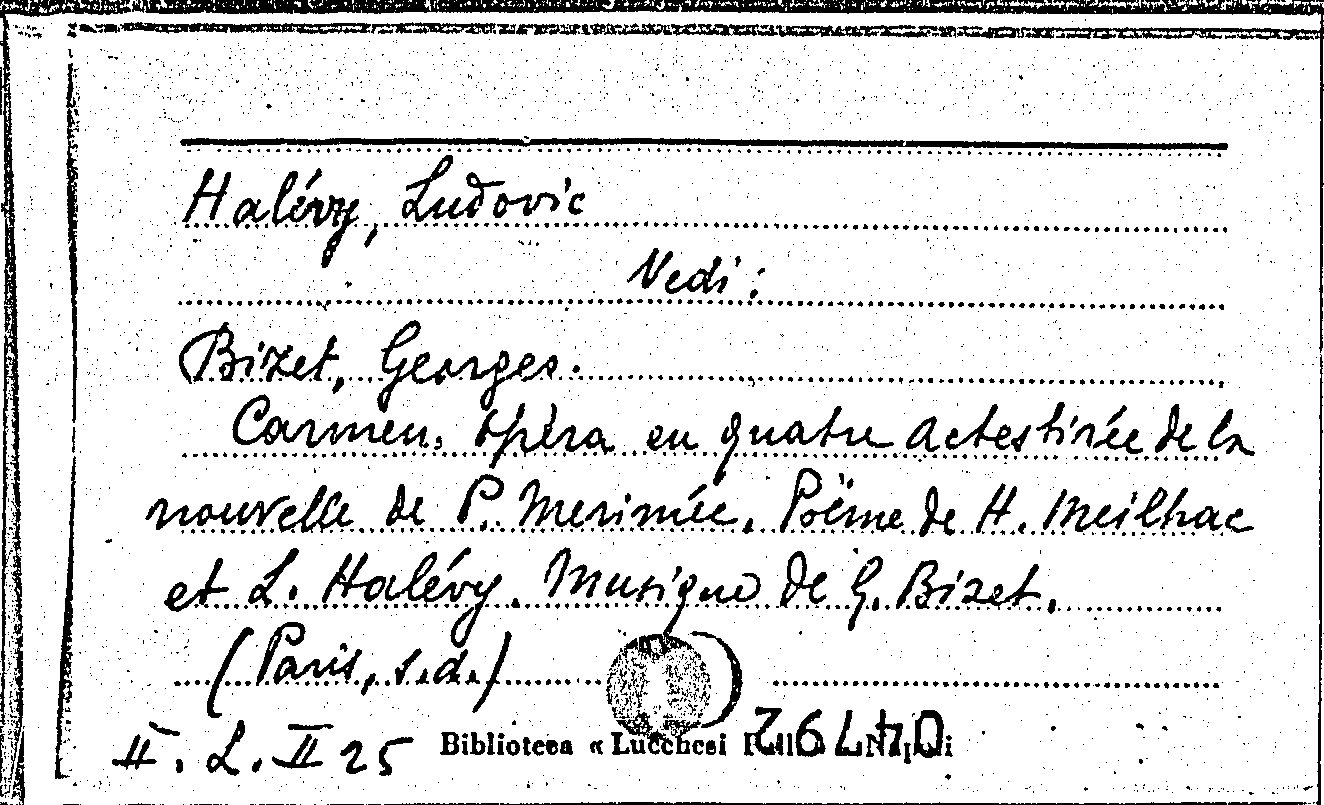 Halévy, Ludovic
Vedi:
Bizet, Georges.
Carmen, opéra en quatre actes tirée de la
nouvelle de P. Merimée. Poëme de H. Meilhac
et L. Halévy. Musique de G. Bizet.
(Paris, s.d.)
II. L. II 25
Biblioteca « Lucchesi